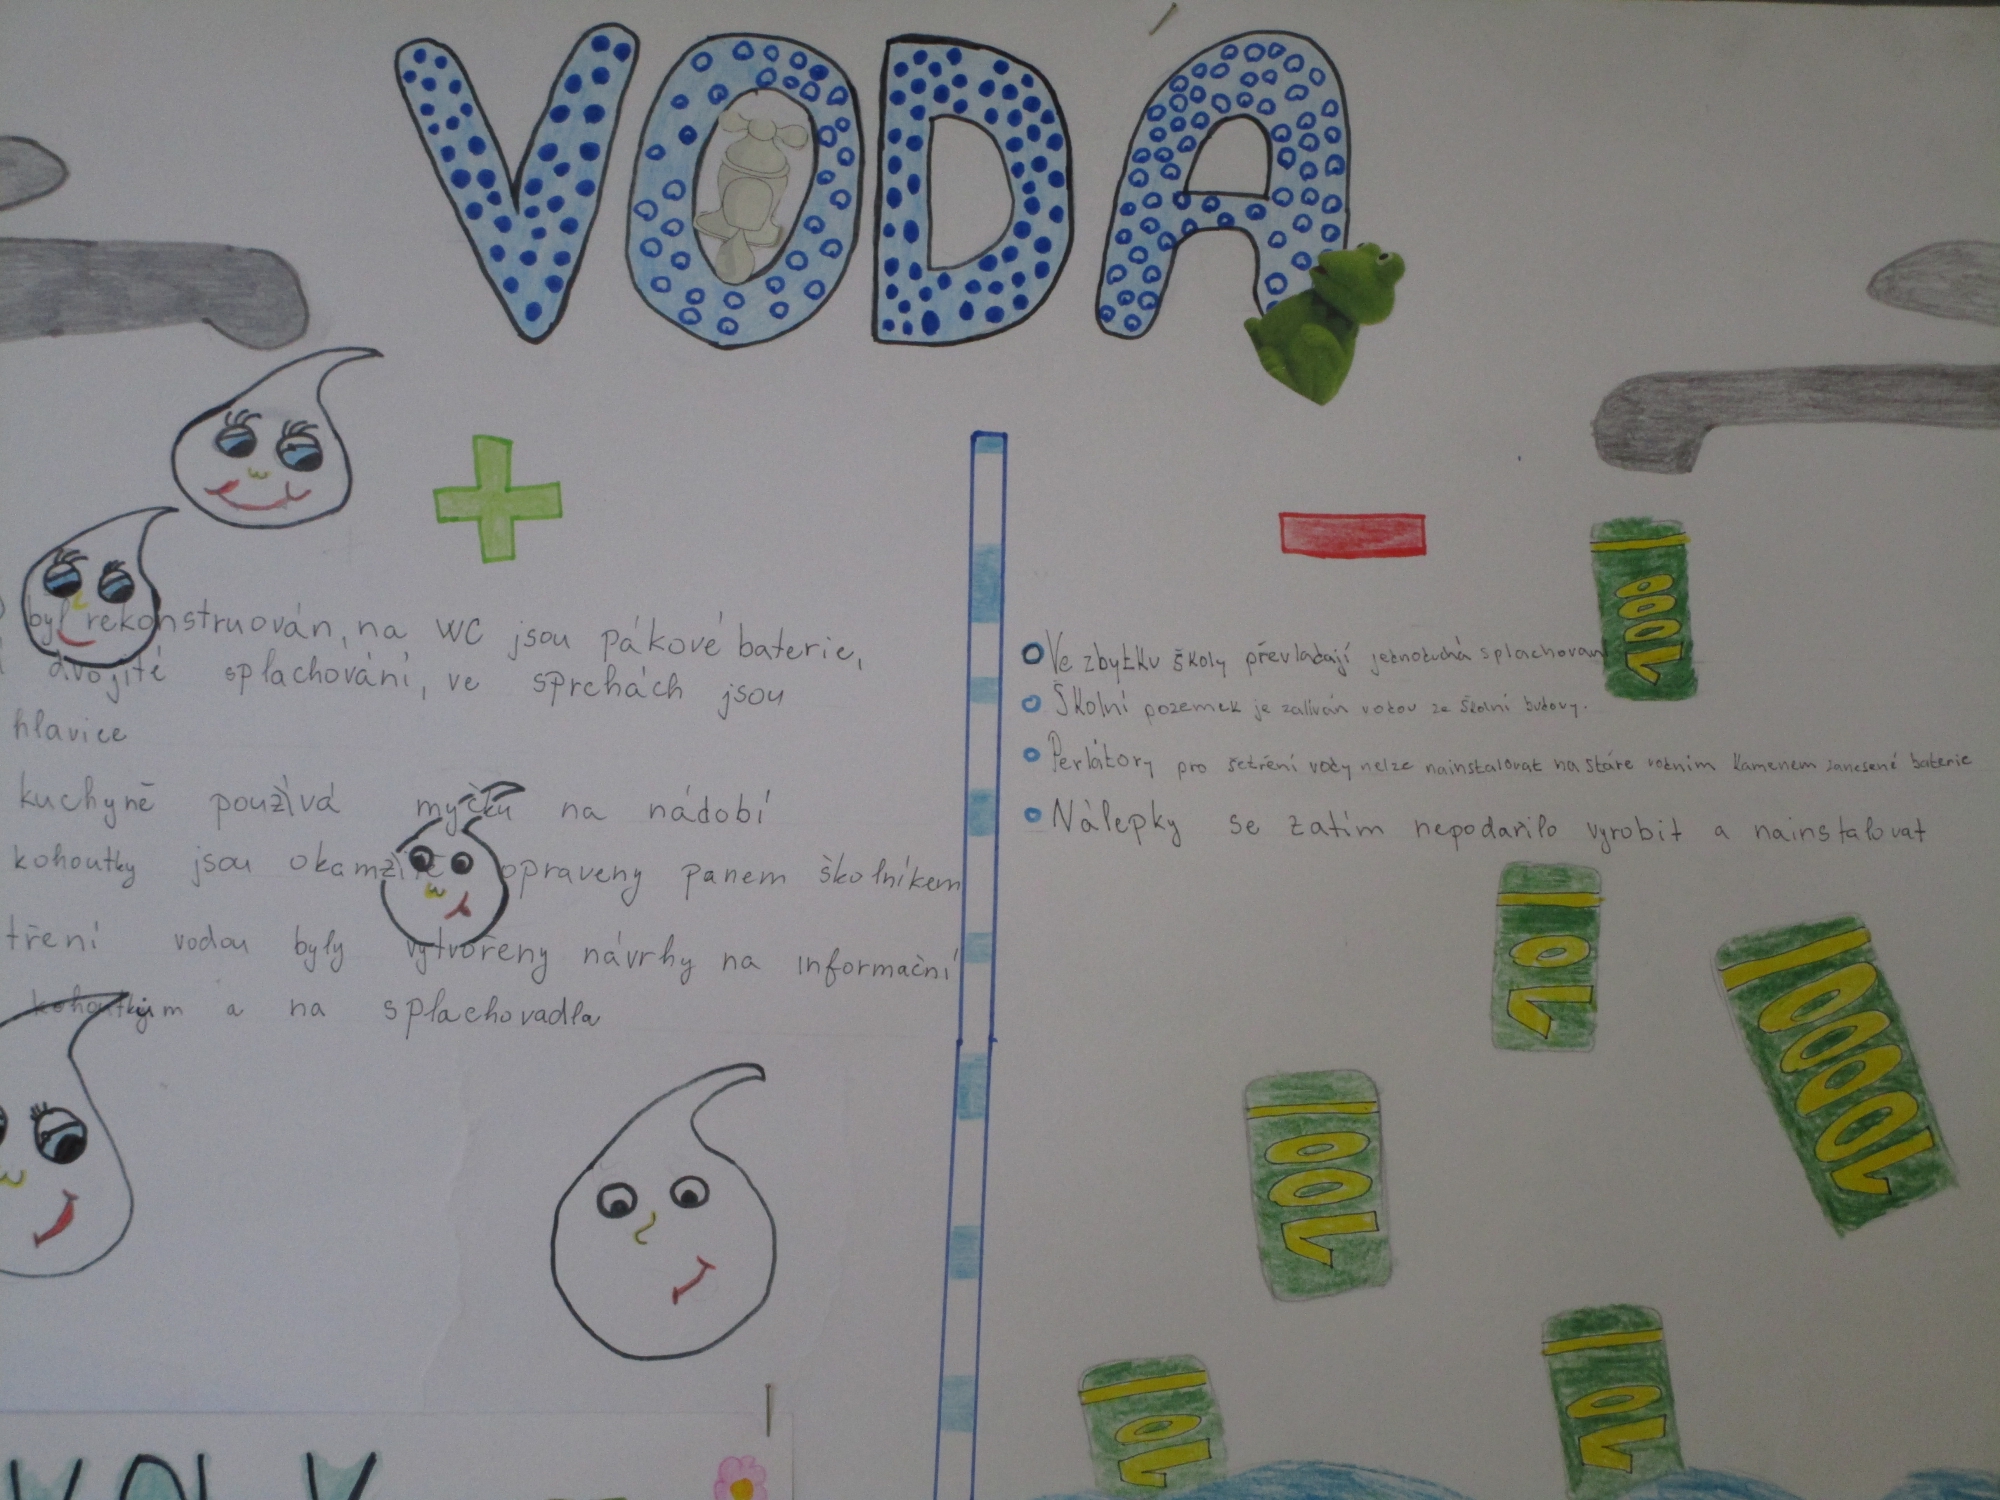 VODA
byl rekonstruován, na WC jsou pákové baterie,
dvojité splachování, ve sprchách jsou
hlavice
kuchyně používá myčku na nádobí
kohoutky jsou okamžitě opraveny panem školníkem
tření vodou byly vytvořeny návrhy na informační
kohoutkům a na splachovadla
Ve zbytku školy převládají jednoduchá splachovan
Školní pozemek je zaléván vodou ze školní budovy.
Perlátory pro šetření vody nelze nainstalovat na staré vodním kamenem zanesené baterie
Nálepky se zatím nepodařilo vyrobit a nainstalovat
1000L
10L
10000L
100L
10L
10L